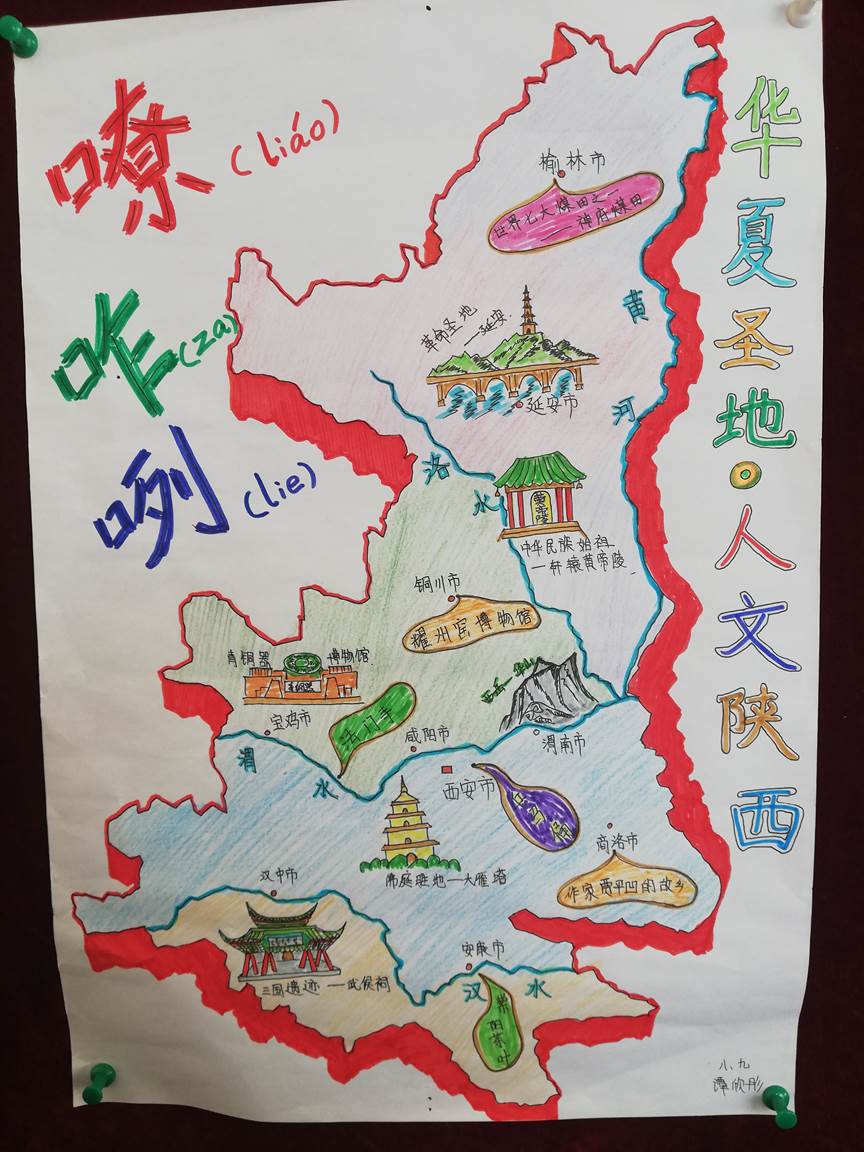 嘹(liáo)
咋(za)
咧(lie)
华夏圣地·人文陕西
榆林市
世界七大煤田之一
——神府煤田
黄河
革命圣地
—延安
延安市
洛水
黄帝陵
中华民族始祖
—轩辕黄帝陵
铜川市
耀州窑博物馆
青铜器 博物馆
宝鸡市
法门寺
咸阳市
西岳—华山
渭南市
渭水
西安市
兵马俑
商洛市
作家贾平凹的故乡
佛庭驻地—大雁塔
汉中市
三国遗迹——武侯祠
安康市
汉水
紫阳茶叶
八、九
谭欣彤